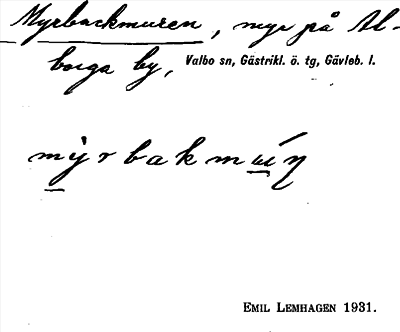 Myrbackmuren, myr på Al-
borga by, Valbo sn, Gästrikl. ö. tg, Gävleb. l.
EMIL LEMHAGEN 1931.